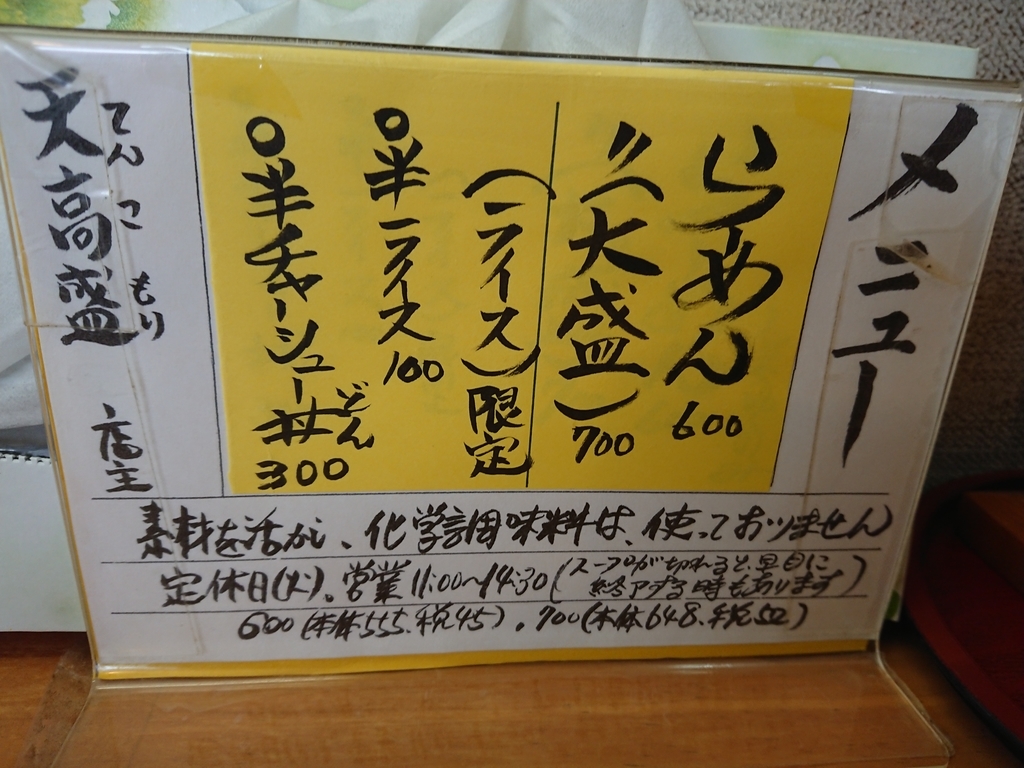 メニュー
らーめん 600
〃(大盛) 700
(ライス)限定
○半ライス 100
○半チャーシュー丼 300
どん
天高盛 店主
てんこ もり
素材を活かし、化学調味料は、使っておりません
定休日(火)、営業11:00〜14:30(スープが切れると、早目に
終了する時もあります)
600(本体555.税45)、700(本体648.税52)